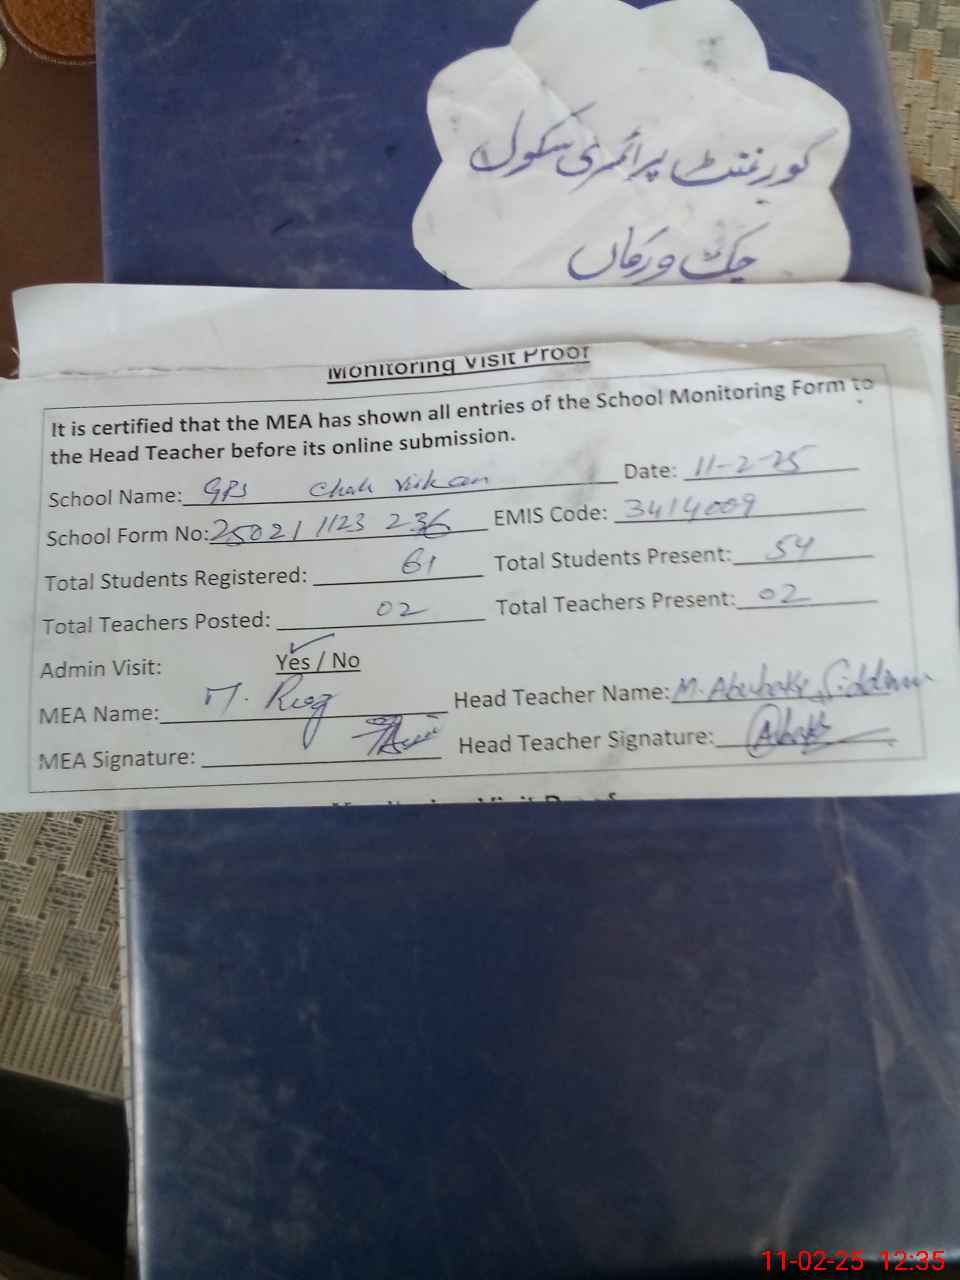 گورنمنٹ پرائمری سکول
چک ورکاں
Monitoring Visit Proof
It is certified that the MEA has shown all entries of the School Monitoring Form to
the Head Teacher before its online submission.
School Name: GPS Chak Virkan Date: 11-2-25
School Form No: 25021 1123 236 EMIS Code: 3414009
Total Students Registered: 61 Total Students Present: 54
Total Teachers Posted: 02 Total Teachers Present: 02
Admin Visit: Yes / No
MEA Name: M. Head Teacher Name: M. Abubakr Siddique
MEA Signature: Head Teacher Signature:
Monitoring Visit Proof
11-02-25 12:35